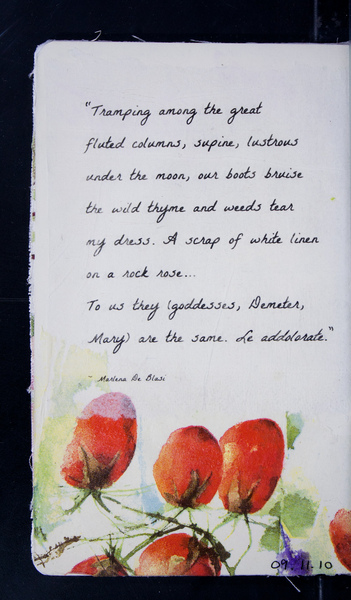 "Tramping among the great
fluted columns, supine, lustrous
under the moon, our boots bruise
the wild thyme and weeds tear
my dress. A scrap of white linen
on a rock rose...
To us they (goddesses, Demeter,
Mary) are the same. Le addolorate."
~ Marlena De Blasi
09.11.10